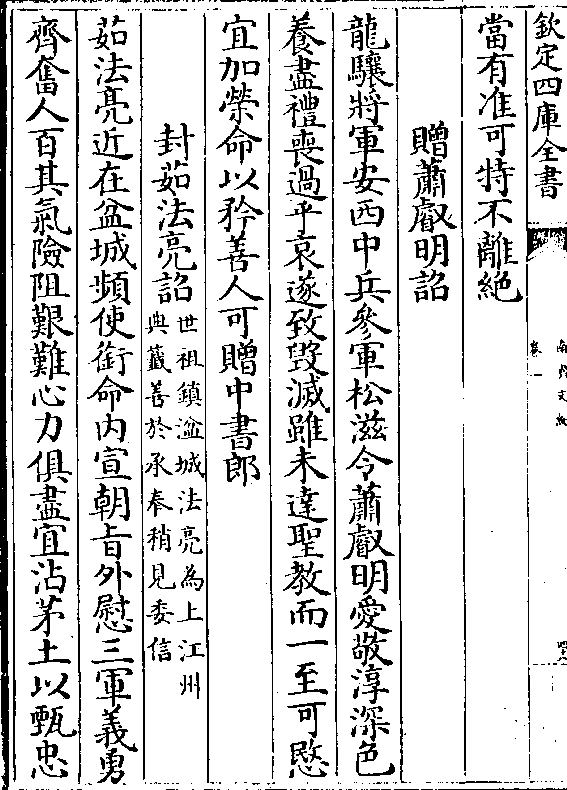 欽定四庫全書
南齊文紀
卷一
當有准可特不離絶
贈蕭叡明詔
龍驤將軍安西中兵參軍松滋令蕭叡明愛敬淳深色
養盡禮喪過乎哀遂致毀滅雖未達聖教而一至可愍
宜加榮命以矜善人可贈中書郎
封茹法亮詔世祖鎮湓城法亮為上江州
典籖善於承奉稍見委信
茹法亮近在盆城頻使銜命内宣朝旨外慰三軍義勇
齊奮人百其氣險阻艱難心力俱盡宜沾茅土以甄忠